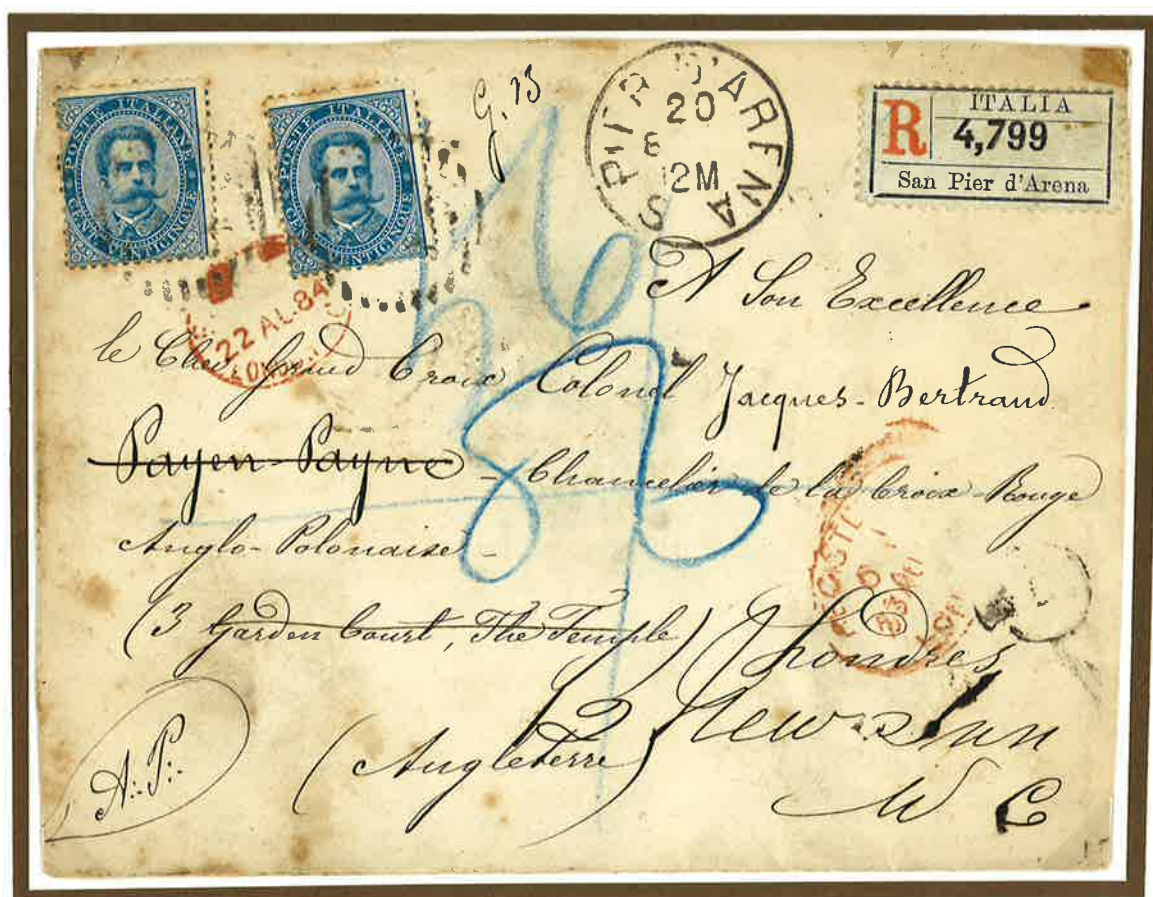 POSTE ITALIANE
CENT. VENTICINQUE
POSTE ITALIANE
CENT. VENTICINQUE
G. 13
S. PIER D'ARENA
20
8
2M
ITALIA
R 4,799
San Pier d'Arena
22 AU 84
A Son Excellence
le Chev. Grand Croix Colonel Jacques-Bertrand
Payen-Payne - Chancelier de la Croix Rouge
Anglo-Polonaise -
(3 Garden Court, The Temple) Londres
2 New Inn
(Angleterre)
W C
A.·.P.·.
REGISTERED
23 AU